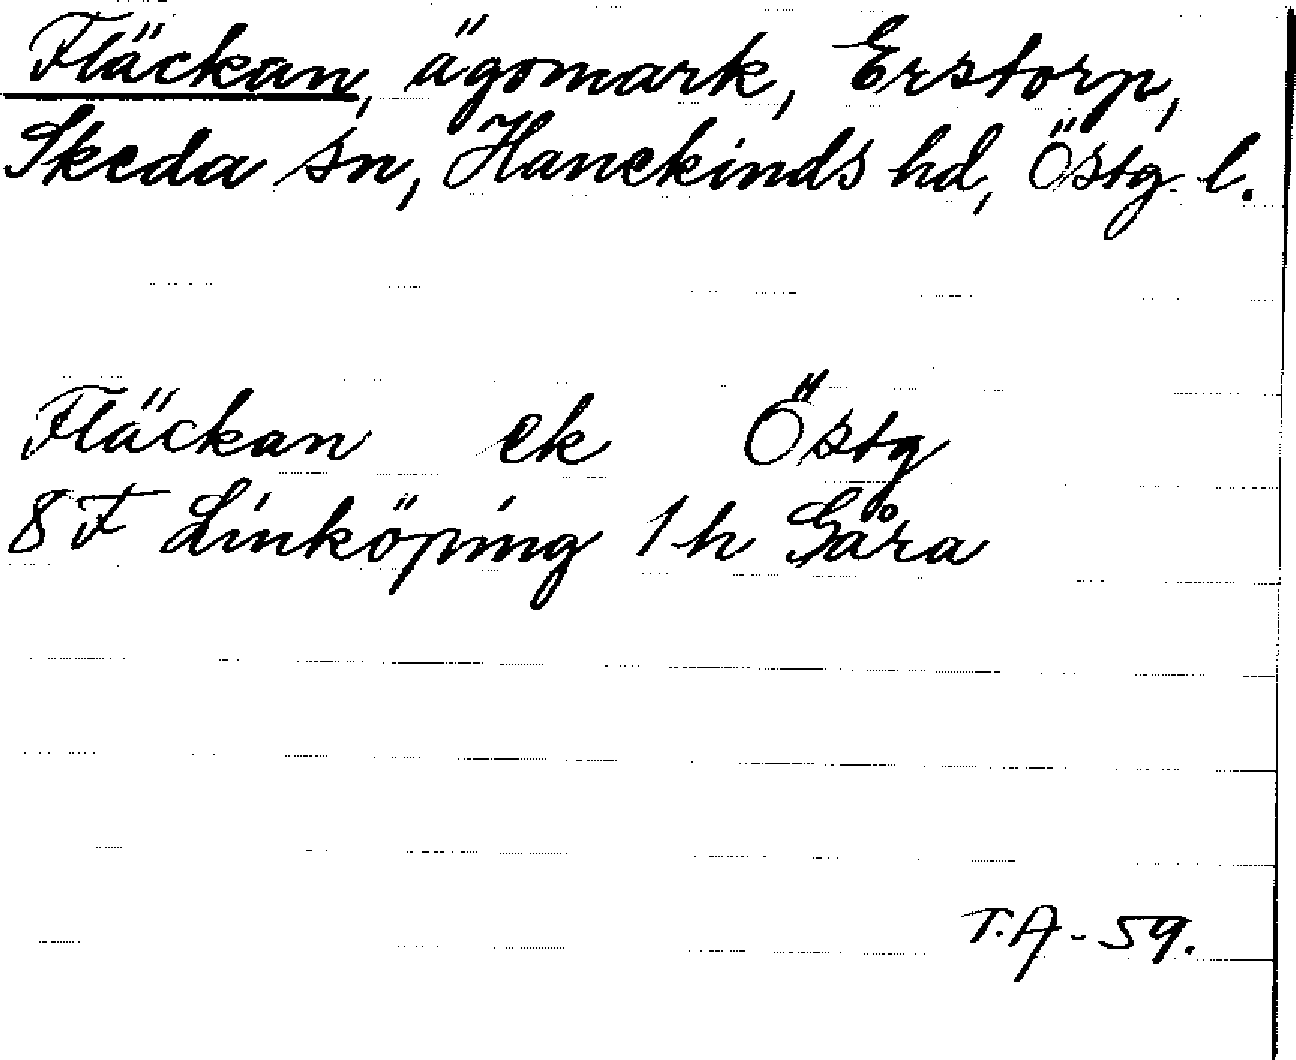 Fläckan, ägomark, Erstorp,
Skeda sn, Hanekinds hd, Östg. l.
Fläckan ek Östg
8 F Linköping 1 h Gåra
T.A-59.